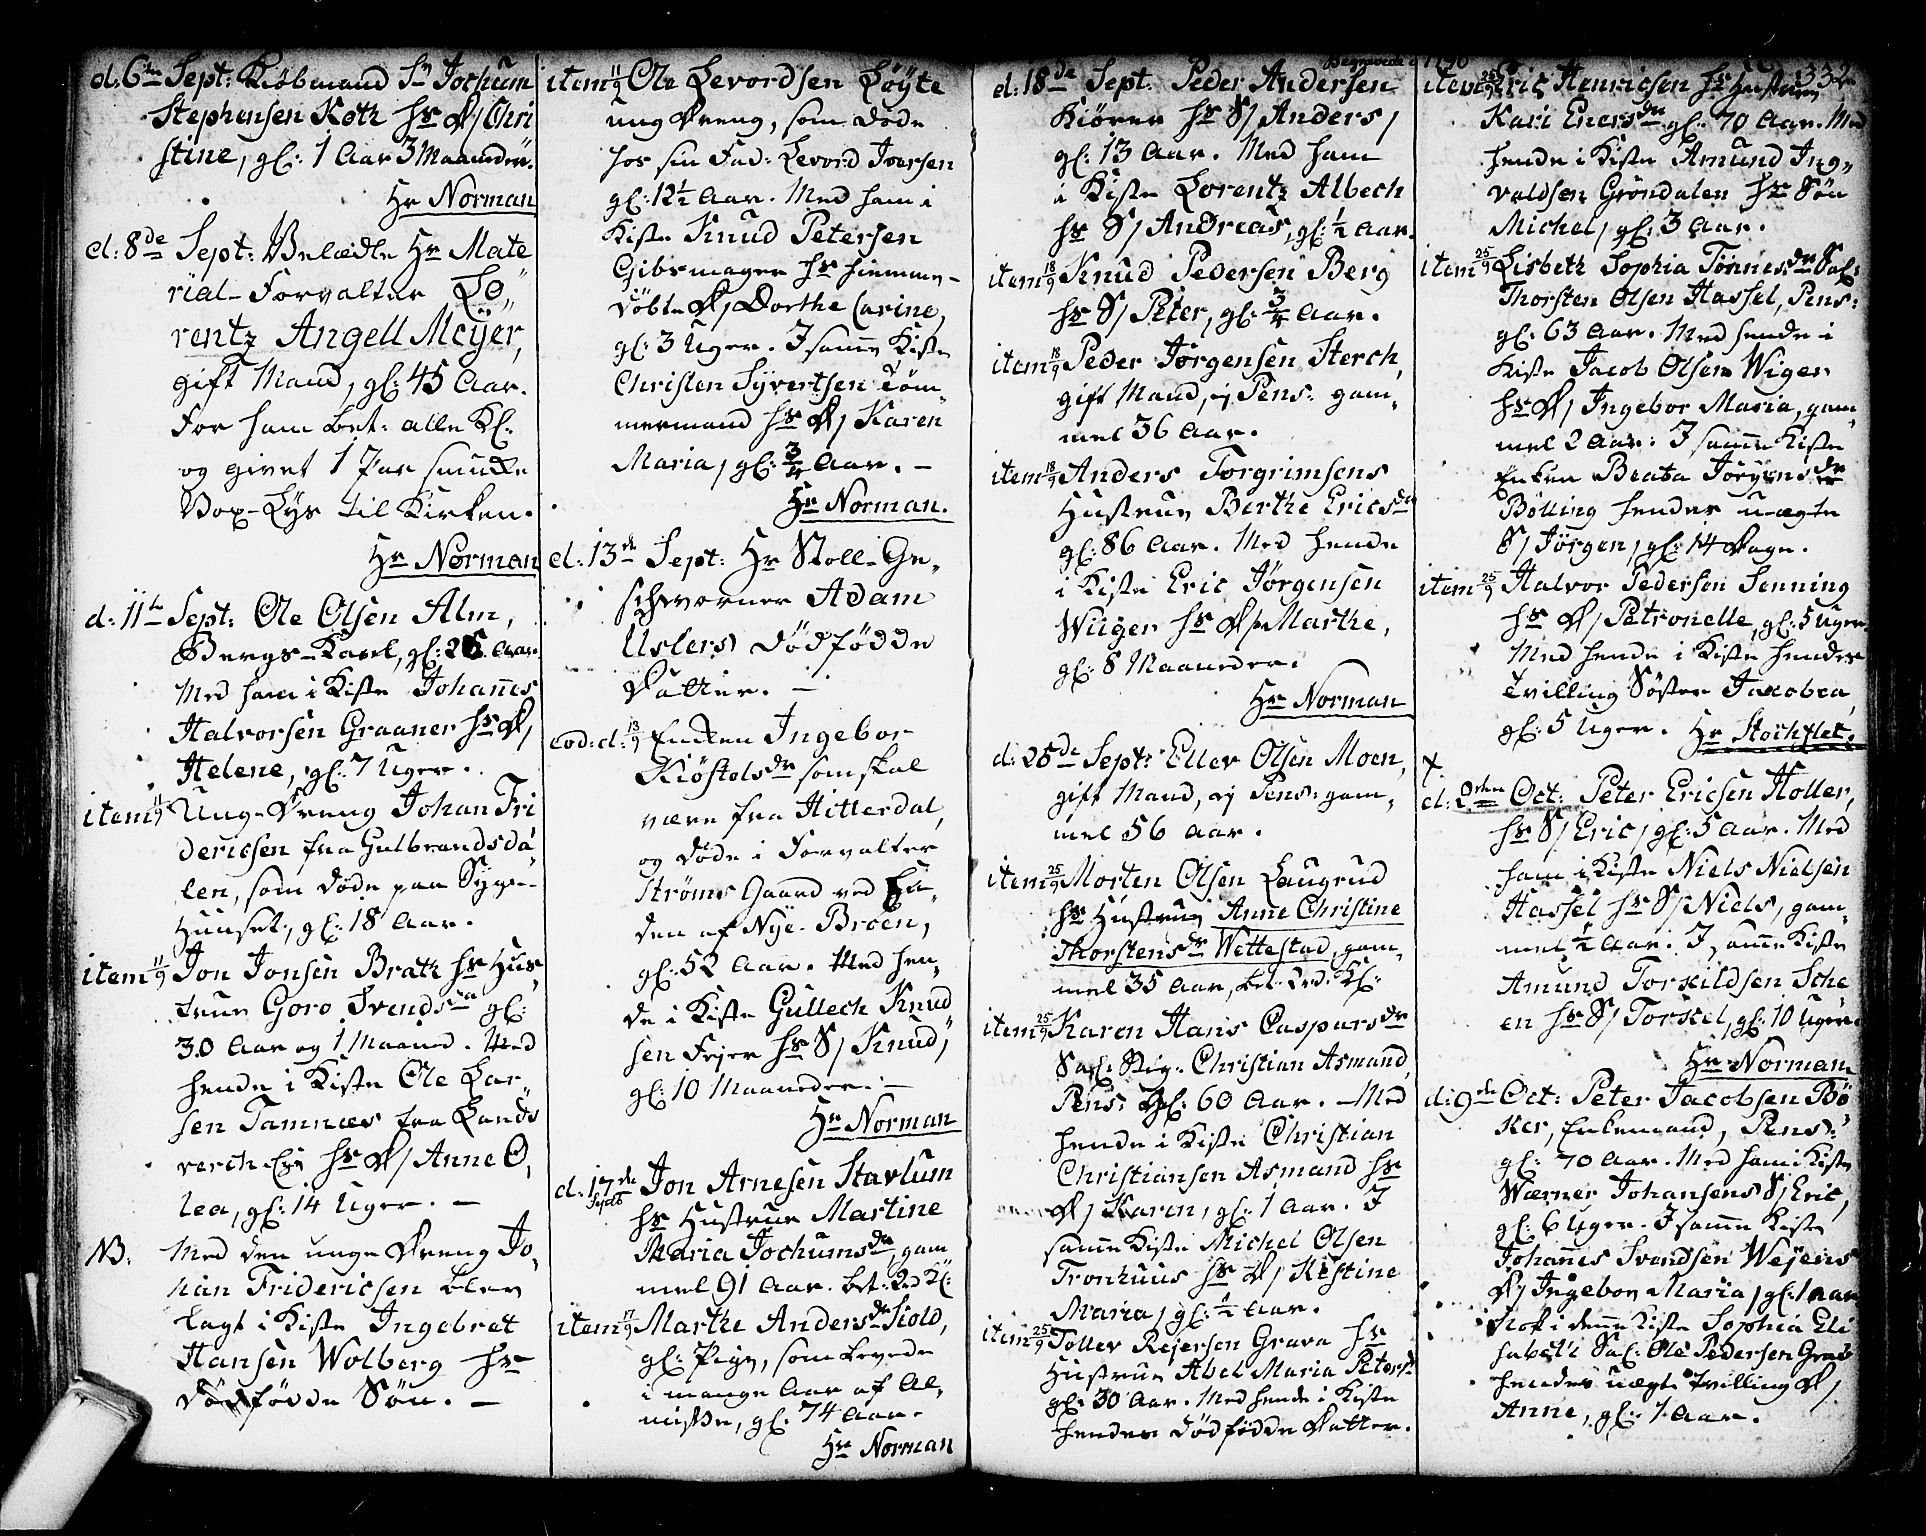 d: 6te Sept: Kiöbmand Sr Jochum
Stephensen Koth hs D/ Chri
stine, gl: 1 Aar 3 Maaneder.
Hr Norman
d: 8de Sept: Velædle Hr Mate
rial-Forvalter Lo
rentz Angell Meÿer,
gift Mand, gl: 45 Aar.
For ham bet: alle Kl:
og givet 1 Par smukke
Vox-Lÿs til Kirken.
Hr Norman
d: 11te Sept: Ole Olsen Alm,
Bergs-Karl, gl: 26 Aar.
Med ham i Kiste Johannes
Halvorsen Graaner hs D/
Helene, gl: 7 Uger.
item 11/9 Ung-Dreng Johan Fri
dericsen fra Gulbrandsda
len, som döde paa Syge-
Huuset, gl: 18 Aar.
item 11/9 Jon Jonsen Brath hs Hus
true Goro Svendsda gl:
30 Aar og 1 Maaned. Med
hende i Kiste Ole Lar
sen Tamnæs fra Lands
verch Ejer hs D/ Anne O
lea, gl: 14 Uger. —
NB. Med den unge Dreng Jo
han Fridericsen blev
lagt i Kiste Ingebret
Hansen Wolberg hs
dödfödde Sön. —
item 11/9 Ole Levordsen Löÿte
ung Dreng, som döde
hos sin Fad: Levord Iversen
gl: 12½ Aar. Med ham i
Kiste Knud Petersen
Gibsmager hs hiemme-
döbte D/ Dorthe Carine,
gl: 3 Uger. I samme Kiste
Christen Sÿvertsen Töm
mermand hs D/ Karen
Maria, gl: ¾ Aar. —
Hr Norman.
d: 13de Sept: Hr Stoll-Ge
schworner Adam
Uslers dödfödde
Datter. —
eod: d: 13/9 Enken Ingebor
Kiöstolsdr som skal
være fra Hitterdal,
og döde i Forvalter
Ströms Gaard ved En
den af Nÿe-Broen,
gl: 52 Aar. Med hen
de i Kiste Gullech Knud
sen Fejer hs S/ Knud,
gl: 10 Maaneder. —
Hr Norman
d: 17de Septb Jon Arnesen Stavlum
hs Hustrue Martine
Maria Jochumsdr, gam
mel 91 Aar. bet: 2de Kl:
item 17/9 Marthe Andersdr Kold,
gl: Pige, som levede
i mange Aar af Al
misse, gl: 74 Aar.
Hr Norman
Begravede 1790
d: 18de Sept: Peder Andersen
Kiörer hs S/ Anders,
gl: 13 Aar. Med ham
i Kiste Lorentz Albech
hs S/ Andreas, gl: ½ Aar.
item 18/9 Knud Pedersen Berg
hs S/ Peter, gl: ¾ Aar.
item 18/9 Peder Jörgensen Sterch,
gift Mand, ej Pens: gam
mel 36 Aar.
item 18/9 Anders Torgrimsens
Hustrue Berthe Ericsda
gl: 86 Aar. Med hende
i Kiste Eric Jörgensen
Wiiger hs D/ Marthe,
gl: 8 Maaneder.
Hr Norman
d: 25de Sept: Eller Olsen Moen,
gift Mand, ej Pens: gam
mel 56 Aar.
item 25/9 Morten Olsen Laugrud
hs Hustrue Anne Christine
Thorstensdr Wettestad, gam
mel 35 Aar, bet: 2de Kl:
item 25/9 Karen Hans Caspursdr
Sal: Stig: Christian Asmand,
Pens: gl: 60 Aar. — Med
hende i Kiste Christian
Christiansen Asmand hs
D/ Karen, gl: 1 Aar. I
samme Kiste Michel Olsen
Tronhuus hs D/ Kestine
Maria, gl: ½ Aar.
item 25/9 Toller Rejersen Grava hs
Hustrue Abel Maria Petersd
gl: 30 Aar. Med hende i Kiste
hendes dödfödde Datter.
332
item 25/9 Eric Henricsen hs Hustrue
Kari Enersdr gl: 70 Aar. Med
hende i Kiste Amund Ing
valdsen Gröndalen hs Sön
Michel, gl: 3 Aar.
item 25/9 Lisbeth Sophia Tönnesdr Sal:
Thorsten Olsen Hassel, Pens:
gl: 63 Aar. Med hende i
Kiste Jacob Olsen Wiger
hs D/ Ingebor Maria, gam
mel 2 Aar. I samme Kiste
Enken Beata Jörgensdr
Bölling hendes uægte
S/ Jörgen, gl: 14 Dage.
item 25/9 Halvor Pedersen Senning
hs D/ Petronelle, gl: 5 Uger.
Med hende i Kiste hendes
Tvilling Söster Jacobea
gl: 5 Uger. Hr Stochflet.
d: 2den Oct: Peter Ericsen Holler,
hs S/ Eric, gl: 5 Aar. Med
ham i Kiste Niels Nielsen
Hassel hs S/ Niels, gam
mel ½ Aar. I samme Kiste
Amund Torkildsen Sche
en hs S/ Torkel, gl: 10 Uger.
Hr Norman
d: 9de Oct: Peter Jacobsen Bö
ker, Enkemand, Pens:
gl: 70 Aar. Med ham i Kiste
Wærner Johansens S/ Eric,
gl: 6 Uger. I samme Kiste
Johannes Svendsen Wejens
D/ Ingebor Maria, gl: 1 Aar
Nok i denne Kiste Sophia Eli
sabeth Sal: Ole Pedersen Grab
hendes uægte Tvilling D/
Anne, gl: 1 Aar.